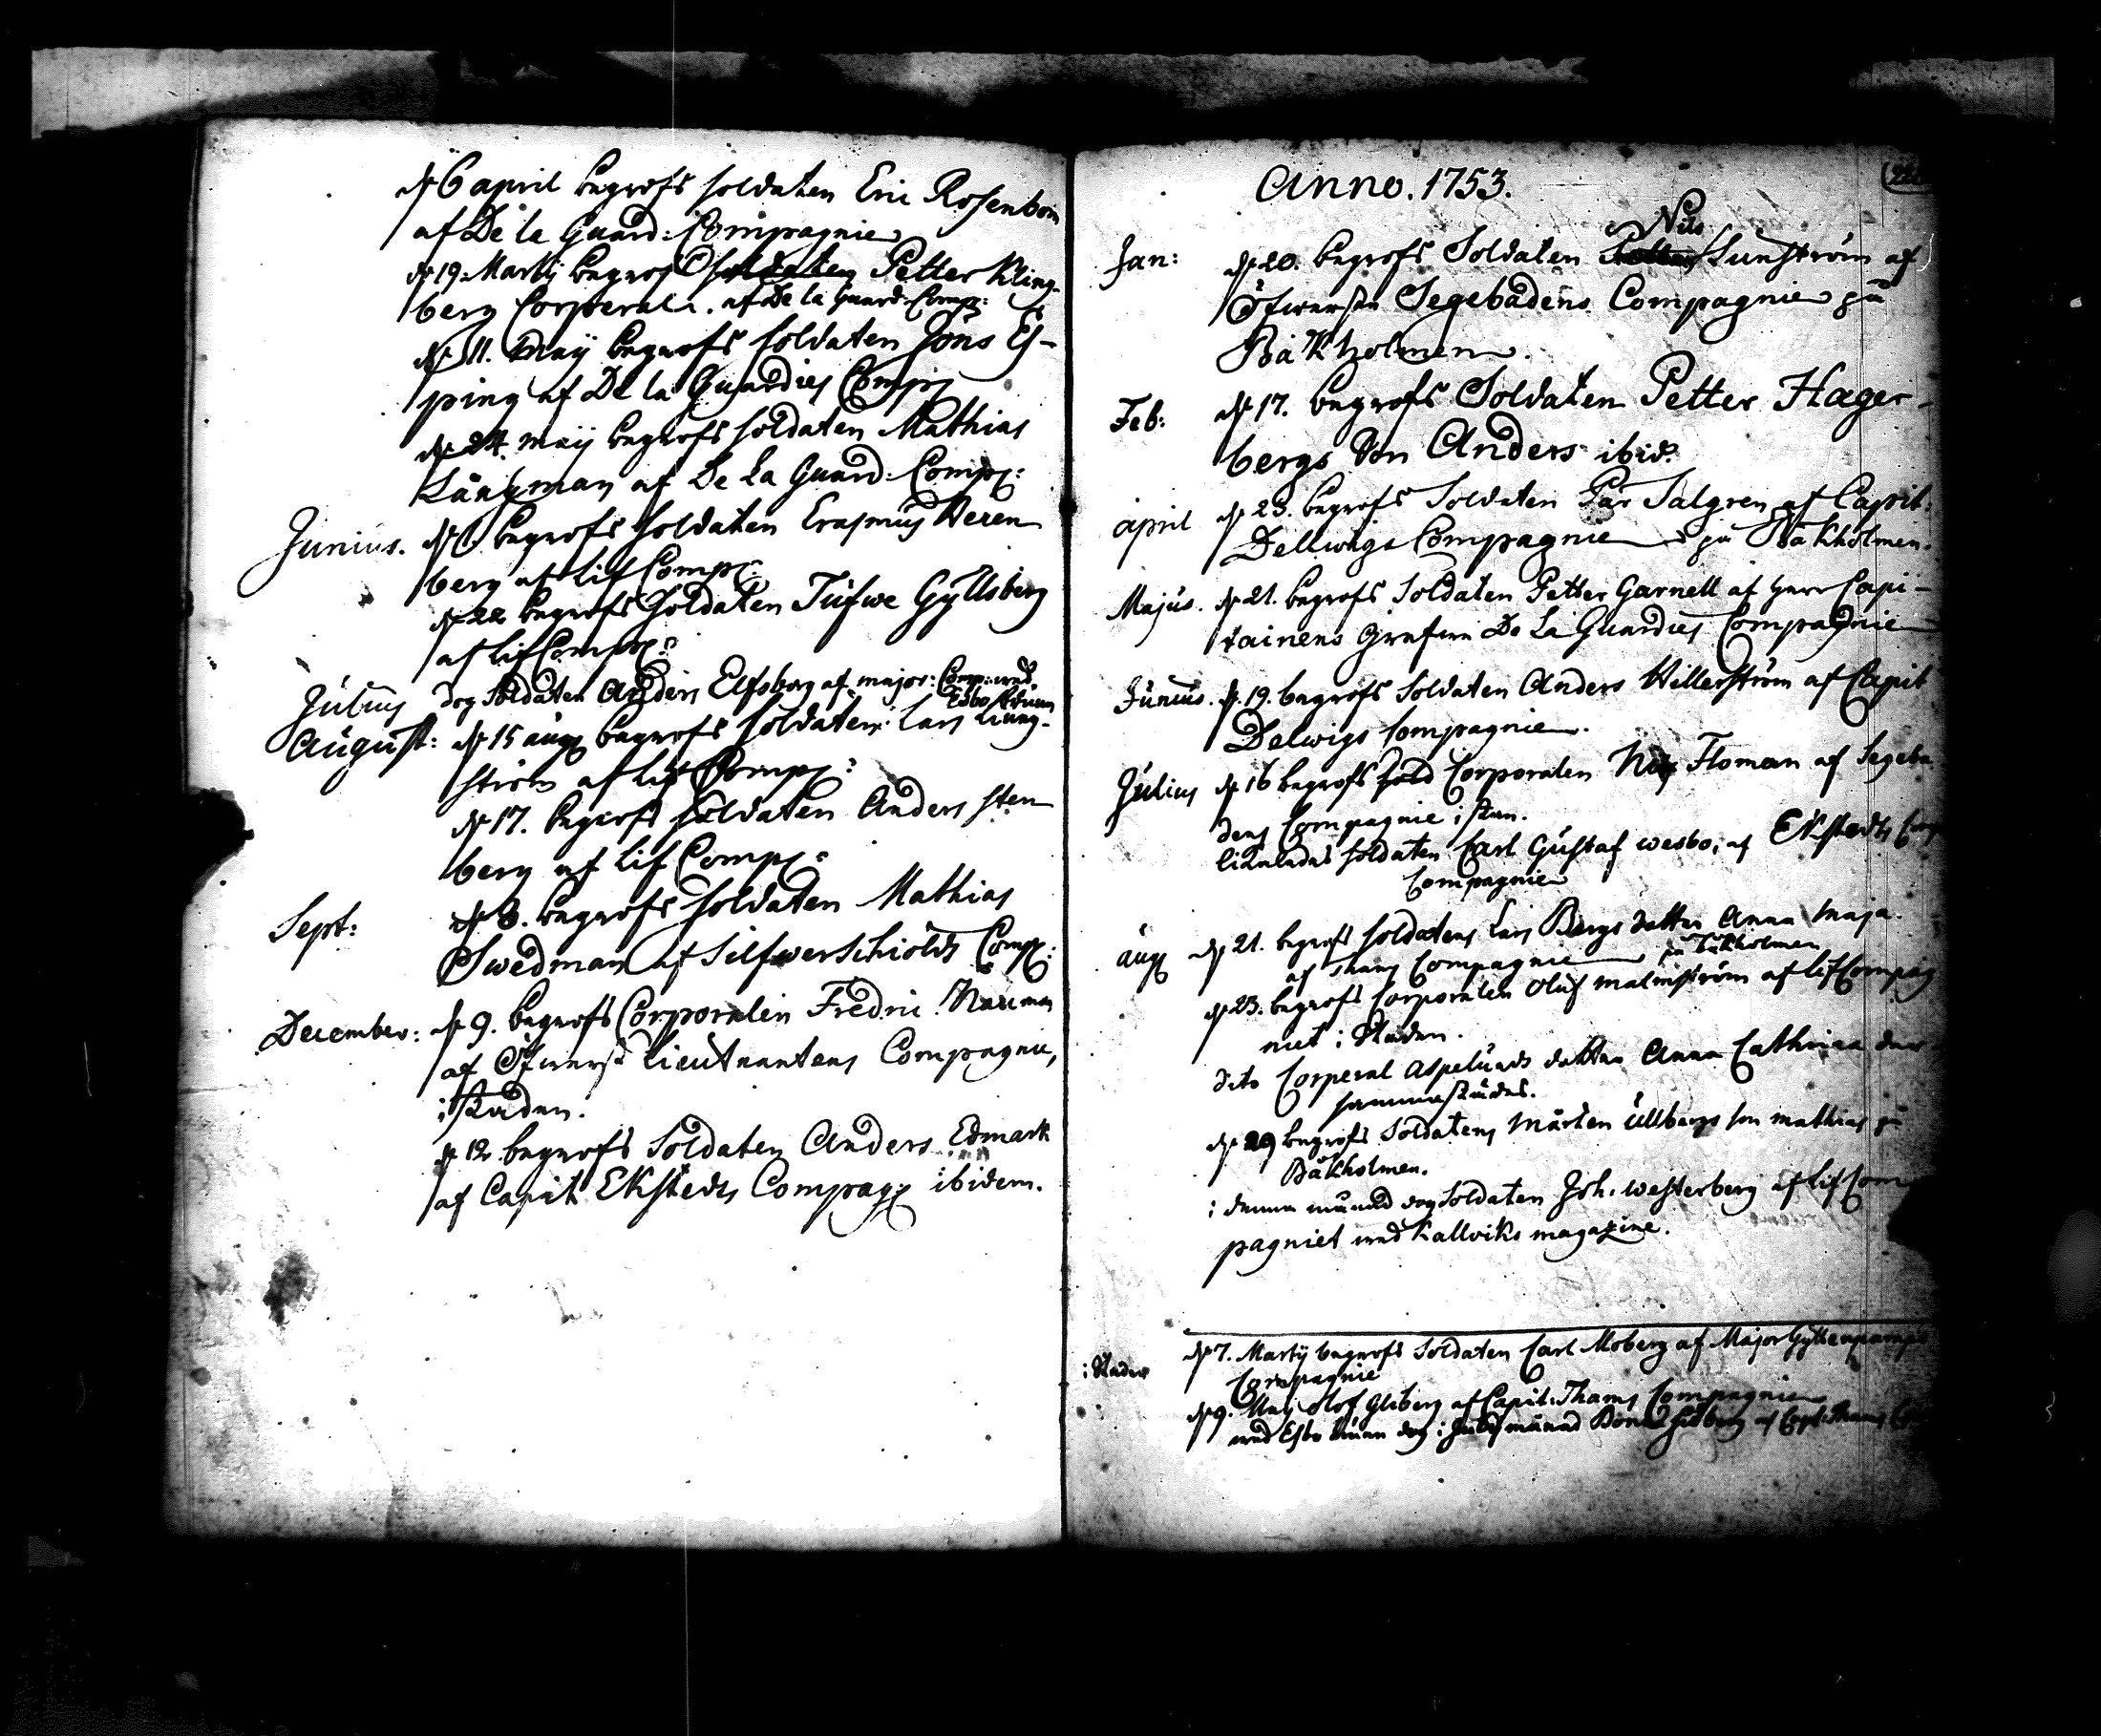 d. 6 april begrofs soldaten Eric Rosenbom
af De la Guard: Compagnie
d. 19. Martij begrofs soldaten Petter Kling-
berg Corporal. af De la Guard: Comp:
d. 11. Maij begrofs soldaten Jöns Es-
ping af De la Guardies Comp:
d. 24. maij begrofs soldaten Mathias
Länsman af De La Guard: Comp:
Junius. d. begrofs soldaten Erasmus Weren
berg af Lif Comp:
d. 22 begrofs Soldaten Tufwe Gyllsberg
af Lif Comp:
Julius dog Soldaten Anders Elfsberg af major: Comp: wid
Esbo
August: d. 15 aug begrofs soldaten Lars Liung-
ström af Lif Comp:
d. 17. begrofs soldaten Anders sten
berg af Lif Comp:
Sept: d. 8. begrofs soldaten Mathias
Swedman af Silfwerschiölds Comp:
December: d. 9. begrofs Corporalen Fredric Nauman
af Öfwerst Lieutnantens Compagnie,
i staden.
d. 12. begrofs Soldaten Anders Edmark
af Capit Ekstedts Compag: ibidem.
Anno. 1753.
Nils
Jan: d. 20. begrofs Soldaten Petter Sunström af
Öfwersten Segebadens Compagnie på
Bakholmen.
Feb: d. 17. begrofs Soldaten Petter Hæger-
bergs Son Anders ibid.
april d. 23. begrofs Soldaten Pär Salgren af Capit:
Dellwigs Compagnie på Bakholmen.
Majus. d. 21. begrofs Soldaten Petter Garnell af herr Capi-
tainens Grefwe De La Guardies Compagnie
Junius. d. 19. begrofs Soldaten Anders Hillerström af Capit
Delwigs Compagnie.
Julius d. 16 begrofs Corporalen Nils Floman af Segeba
dens Compagnie i stan.
likaledes soldaten Carl Gustaf wesbo, af Ekstedts
Compagnie
aug d. 21. begrofs soldatens Lars Bergs dotter Anna Maja.
af Thams Compagnie på Bakholmen
d. 23. begrofs Corporalen Oluf malmström af lifCompag
niet i Staden.
dito Corperal Aspelunds dotter Anna Cathrina der
sammastädes.
d. 29 begrofs Soldatens Mårten Ullbergs son mathias på
Bakholmen.
i denna månad dog Soldaten Joh. westerberg af lif Com
pagniet wid Kallviks magazine.
i Staden d. 7. Martij begrofs Soldaten Carl Moberg af Major Gyttenpamps
Compagnie
d. 9. Maij Olof Gliberg af Capit: Thams Compagnie
wid Esbo dog i Julij månad af Capt: Thams